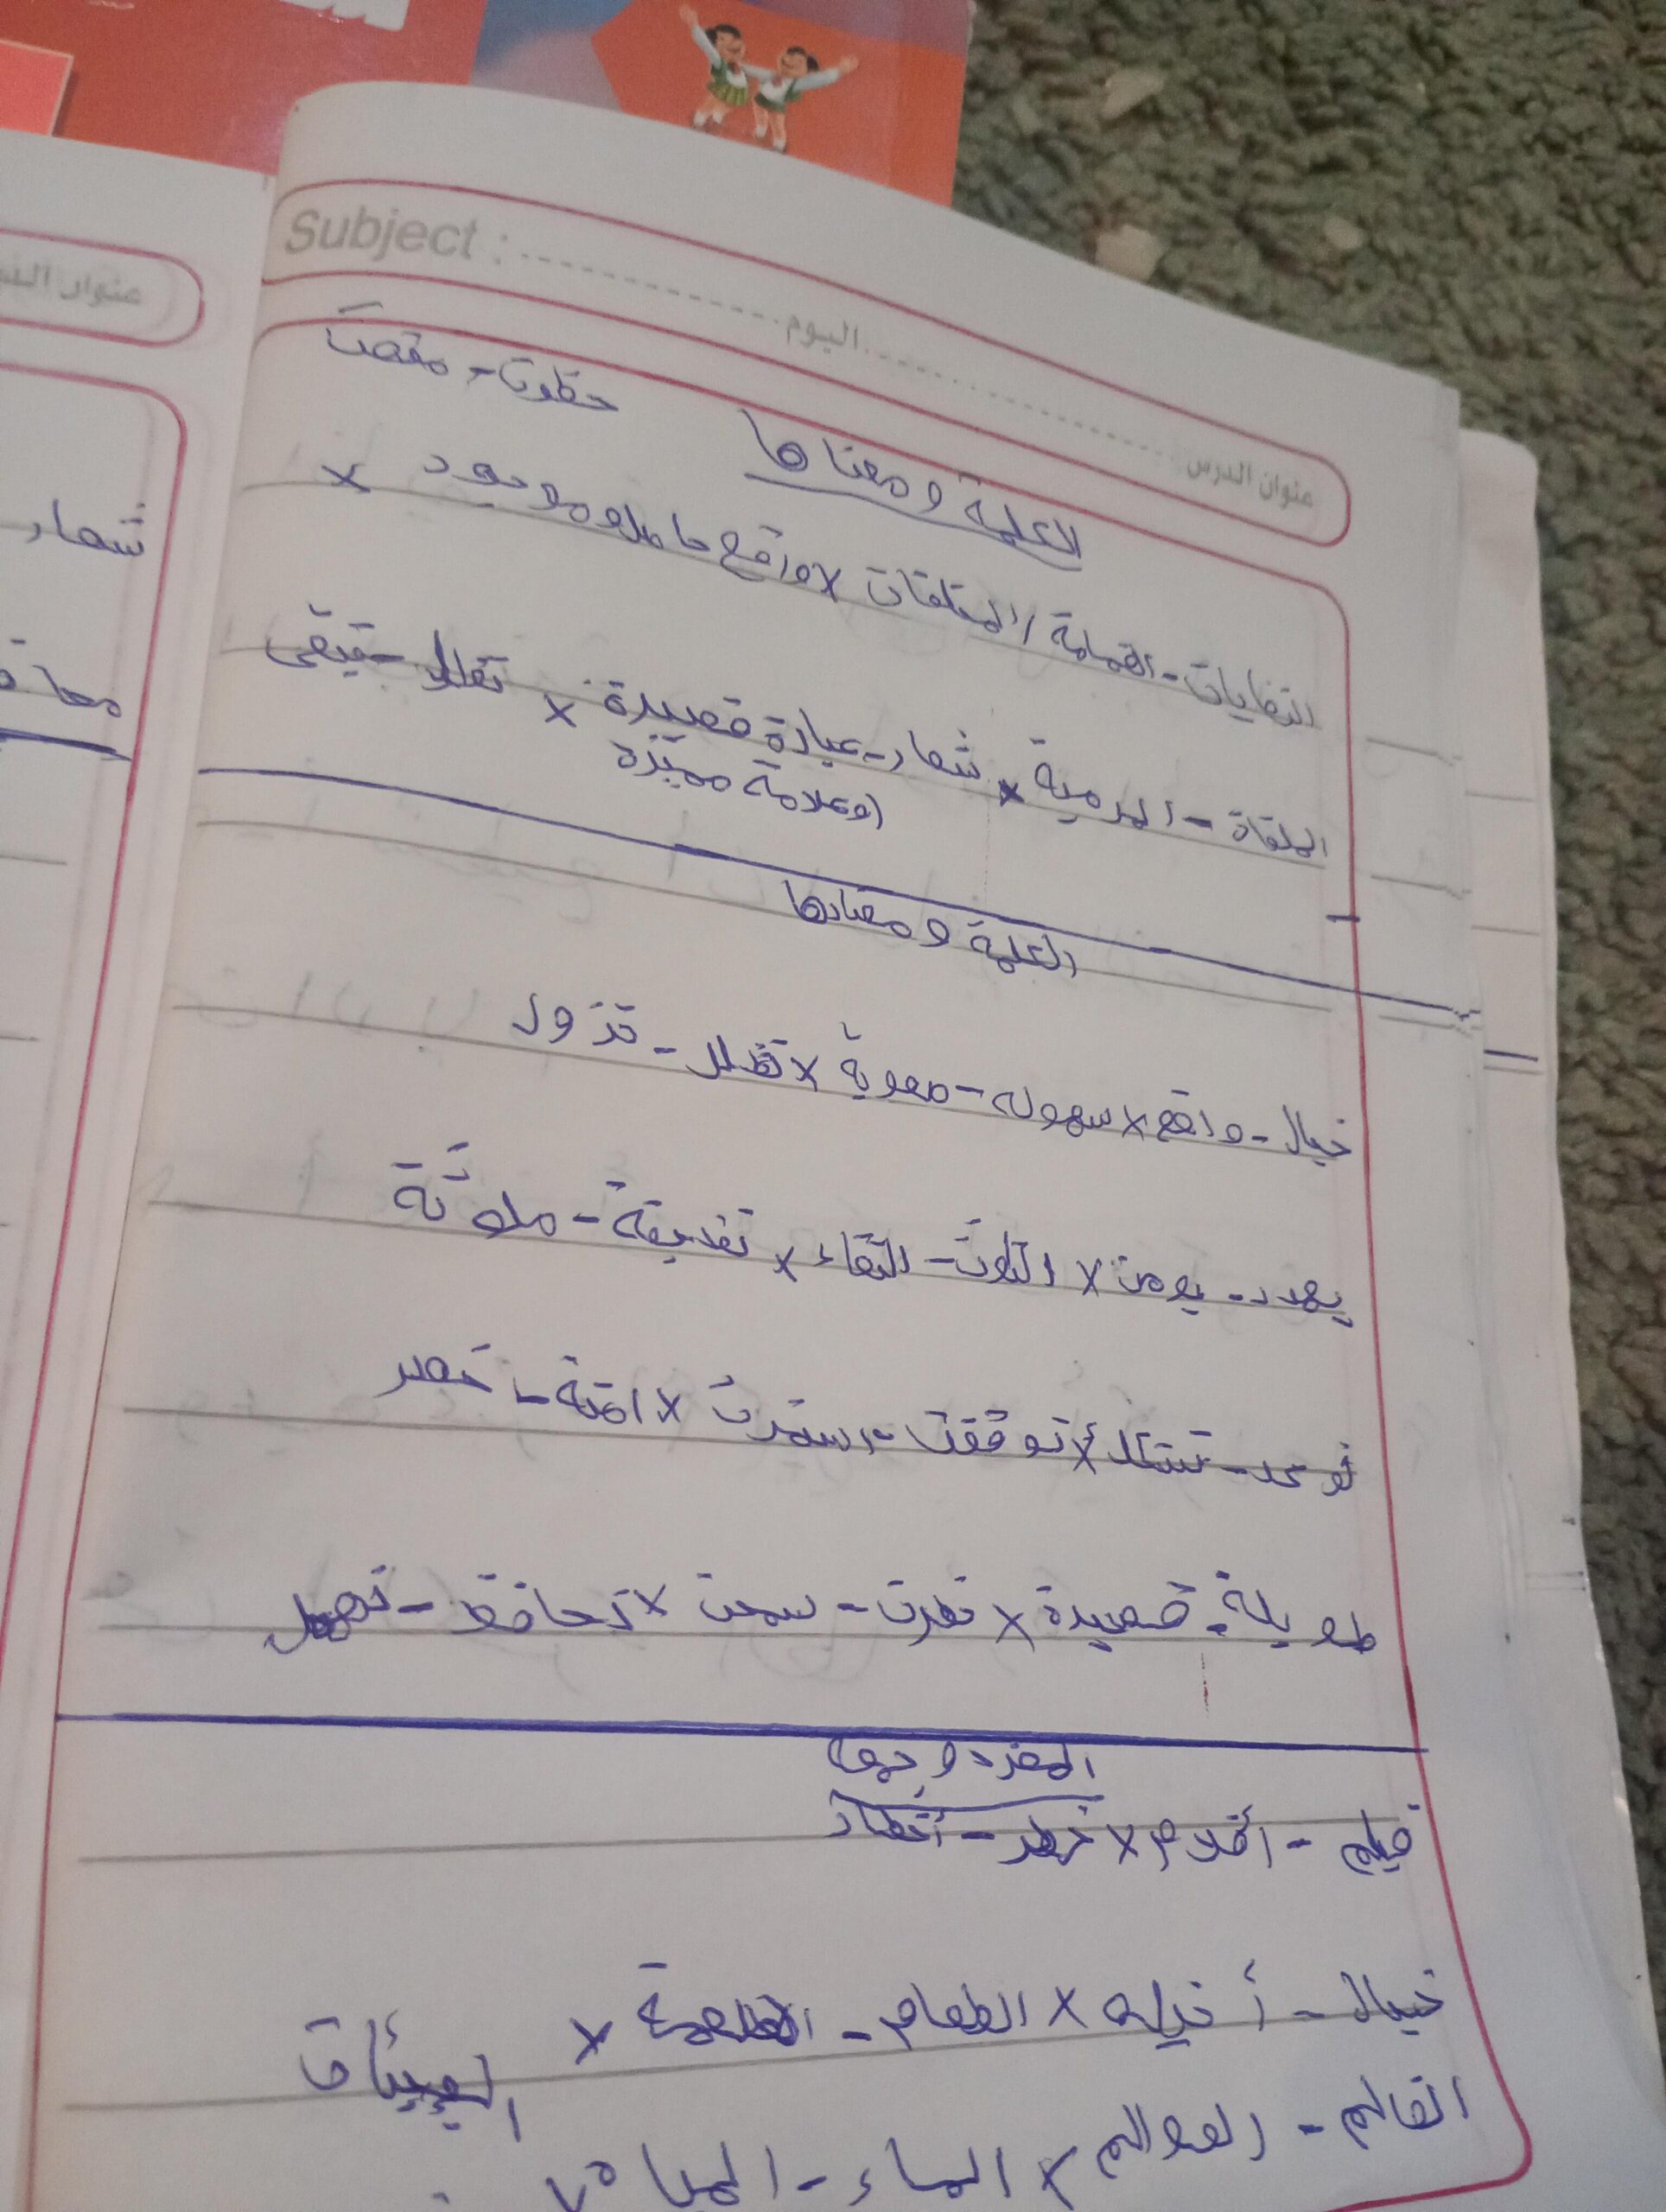 Subject :
اليوم
عنوان الدرس
خطوت -
الكلمة ومعناها
النفايات - القمامة / المخلفات × واقع حاصل وموجود ×
الملقاة - المرمية × شعار - عبارة قصيرة × تظل - تبقى
أو علامة مميزة
الكلمة ومضادها
خيال - واقع × سهوله - صعوبة × تظل - تزول
يهدد - يومن × التلوث - النقاء × نظيفة - ملوثة
توقفت - استمرت × امنة - خطر
طويلة - قصيرة × نظرت - سمعت × تحافظ - تهمل
المفرد وجمعه
فيلم - أفلام × خطر - أخطار
خيال - أخيله × الطعام - الأطعمة ×
البيئات
العالم - العوالم × الماء - المياه ×
عنوان
شعار